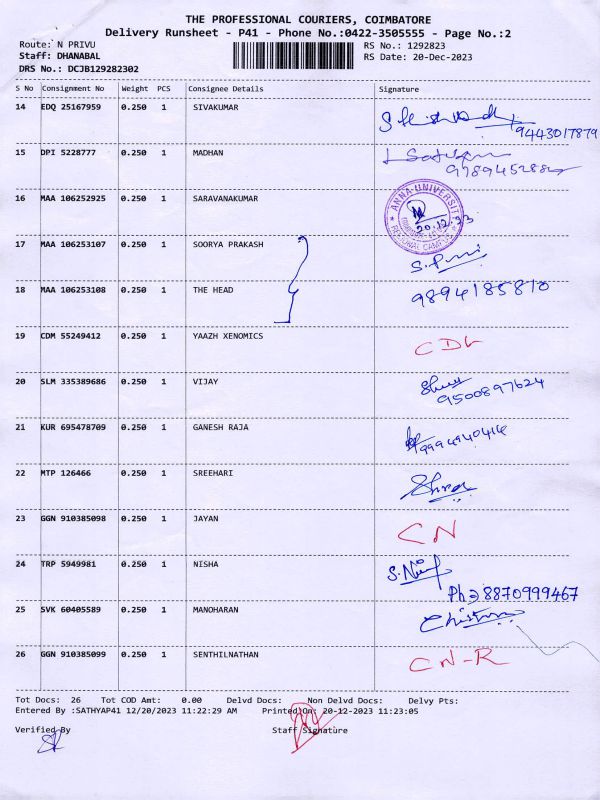 THE PROFESSIONAL COURIERS, COIMBATORE
Delivery Runsheet - P41 - Phone No.:0422-3505555 - Page No.:2
Route: N PRIVU RS No.: 1292823
Staff: DHANABAL RS Date: 20-Dec-2023
DRS No.: DCJB129282302
S No Consignment No Weight PCS Consignee Details Signature
14 EDQ 25167959 0.250 1 SIVAKUMAR
9443017879
15 DPI 5228777 0.250 1 MADHAN
16 MAA 106252925 0.250 1 SARAVANAKUMAR ANNA UNIVERSITY
20.12.23
REGIONAL CAMPUS
17 MAA 106253107 0.250 1 SOORYA PRAKASH
18 MAA 106253108 0.250 1 THE HEAD 9894185810
19 CDM 55249412 0.250 1 YAAZH XENOMICS CDL
20 SLM 335389686 0.250 1 VIJAY
9500897624
21 KUR 695478709 0.250 1 GANESH RAJA
22 MTP 126466 0.250 1 SREEHARI
23 GGN 910385098 0.250 1 JAYAN CN
24 TRP 5949981 0.250 1 NISHA
Ph 8870999467
25 SVK 60405589 0.250 1 MANOHARAN
26 GGN 910385099 0.250 1 SENTHILNATHAN CN-R
Tot Docs: 26 Tot COD Amt: 0.00 Delvd Docs: Non Delvd Docs: Delvy Pts:
Entered By :SATHYAP41 12/20/2023 11:22:29 AM Printed On: 20-12-2023 11:23:05
Verified By Staff Signature